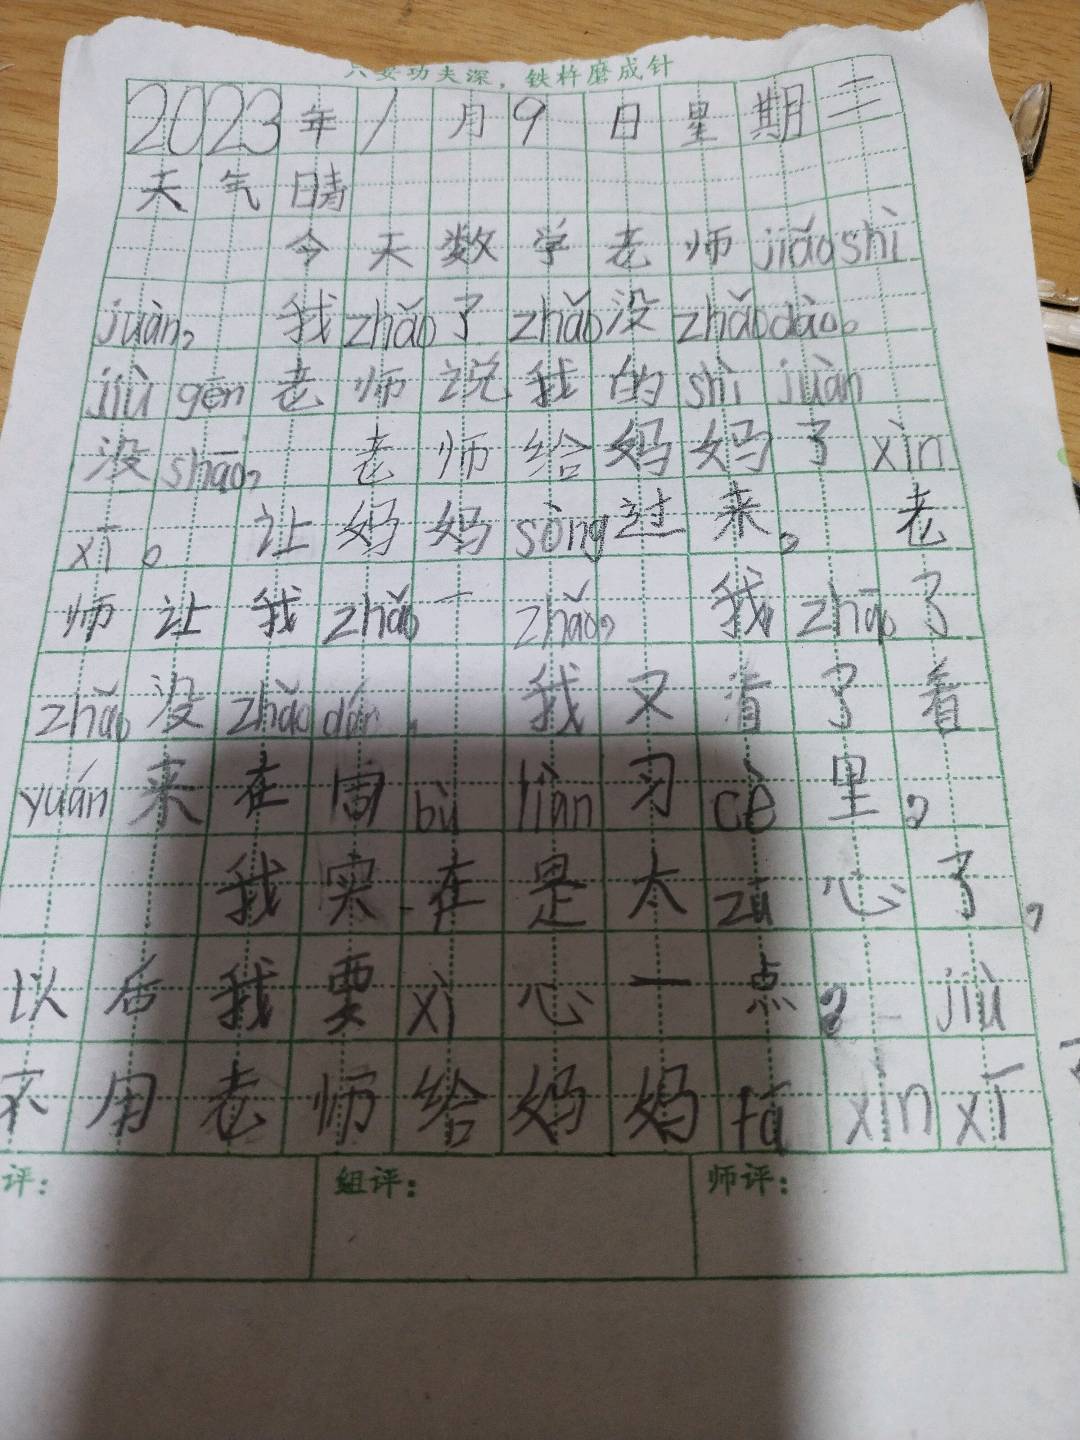 只要功夫深，铁杵磨成针
2023年1月9日星期二
天气晴
今天数学老师jiāoshì
juàn，我zhǎo了zhǎo没zhǎodào。
jiù gēn老师说我的shì juàn
没shōu，老师给妈妈了xìn
xī。让妈妈sòng过来。老
师让我zhǎo一zhǎo，我zhǎo了
zhǎo没zhǎodào，我又看了看
yuán来在宙bù liàn习cè里。
我实在是太zū心了，
以后我要xì心一点，jiù
不用老师给妈妈fā xìn xī
评：
组评：
师评：